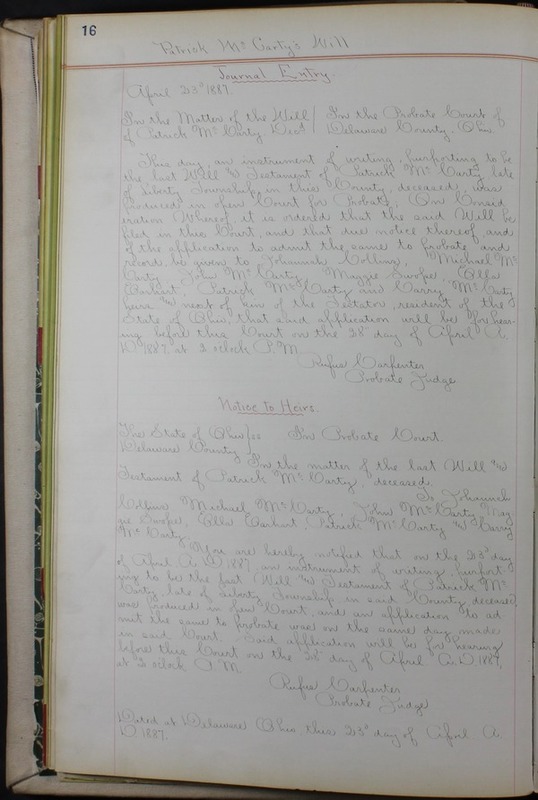 16
Patrick Mc Carty's Will
Journal Entry.
April 23d 1887
In the Matter of the Will / In the Probate Court of
of Patrick Mc Carty Decd / Delaware County, Ohio
This day, an instrument of writing, purporting to be
the last Will & Testament of Patrick Mc Carty late
of Liberty Township, in this County, deceased, was
produced in open Court for Probate; On Consid
eration Whereof, it is ordered that the said Will be
filed in this Court, and that due notice thereof, and
of the application to admit the same to probate and
record, be given to Johannah Collins, Michael Mc
Carty John Mc Carty, Maggie Swope, Ella
Patrick Mc Carty and Carry Mc Carty
heirs & next of kin of the testator, resident of the
State of Ohio, that said application will be for hear-
ing before this Court on the 28 day of April A.
D. 1887. at 2 oclock P.M.
Rufus Carpenter
Probate Judge
Notice to Heirs.
The State of Ohio } ss In Probate Court.
Delaware County }
In the matter of the last Will &
Testament of Patrick Mc Carty, deceased.
To Johannah
Collins, Michael Mc Carty, John Mc Carty Mag
gie Swope, Ella Patrick Mc Carty & Carry
Mc Carty
You are hereby notified that on the 23d day
of April A.D. 1887, an instrument of writing, purport
ing to be the last Will & Testament of Patrick Mc
Carty late of Liberty Township in said County, deceased,
was produced in open Court, and an application to ad
mit the same to probate was on the same day made
in said Court. Said application will be for hearing
before this Court on the 28 day of April A.D. 1887,
at 2 oclock P.M.
Rufus Carpenter
Probate Judge
Dated at Delaware Ohio, this 23d day of April A.
D. 1887.